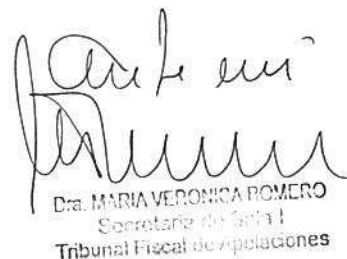 Ante mí
Dra. MARIA VERONICA ROMERO
Secretaria de Sala I
Tribunal Fiscal de Apelaciones